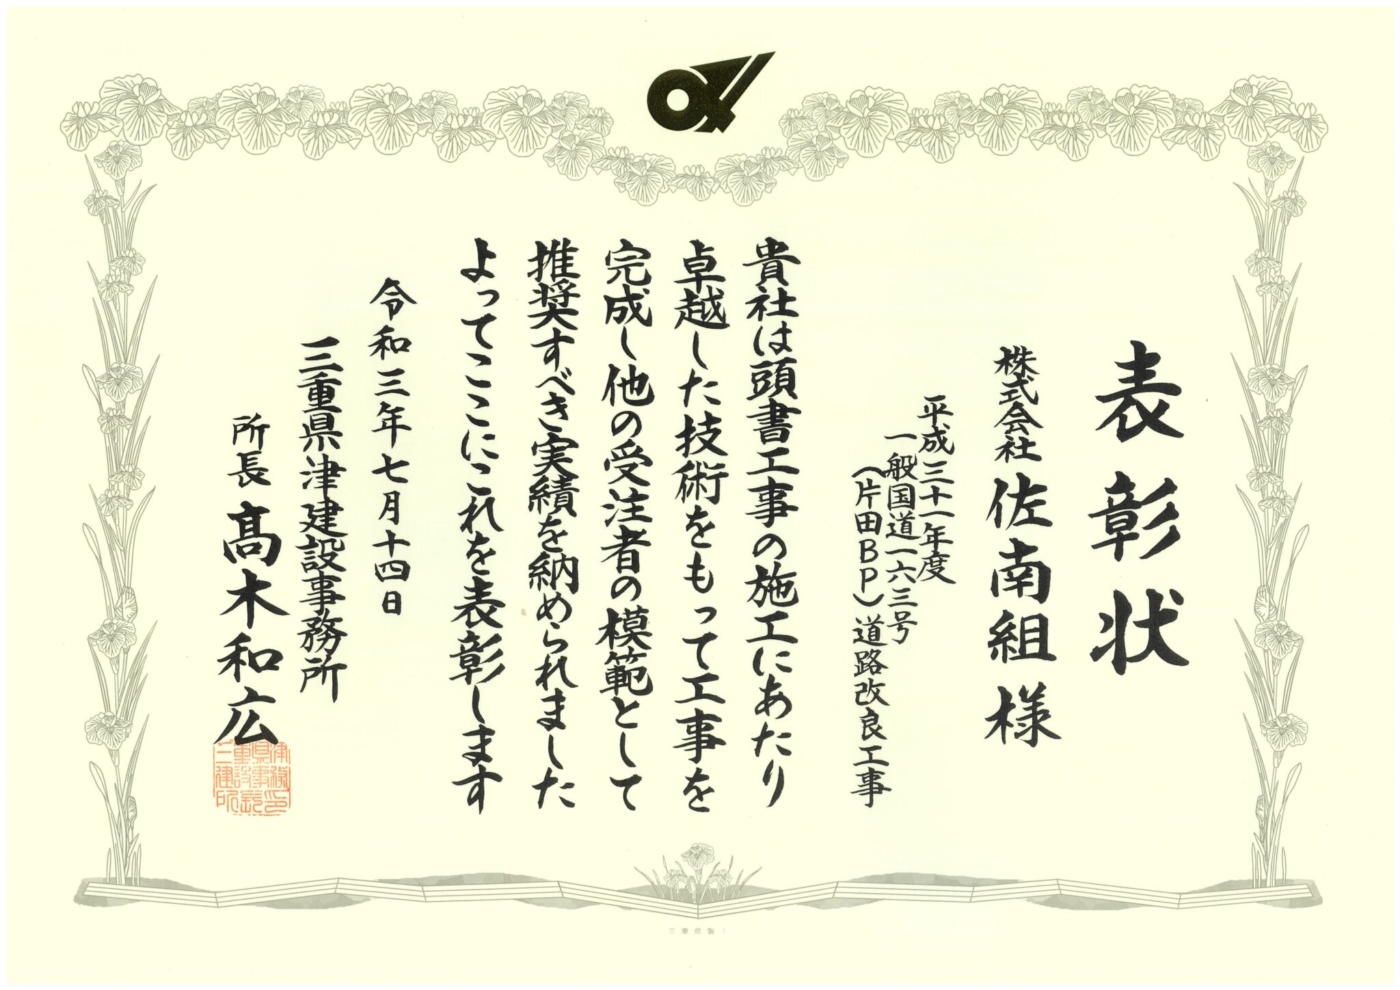 表彰状
株式会社 佐南組 様
平成三十一年度
一般国道一六三号
(片田BP)道路改良工事
貴社は頭書工事の施工にあたり
卓越した技術をもって工事を
完成し他の受注者の模範として
推奨すべき実績を納められました
よってここにこれを表彰します
令和三年七月十四日
三重県津建設事務所
所長 髙木和広